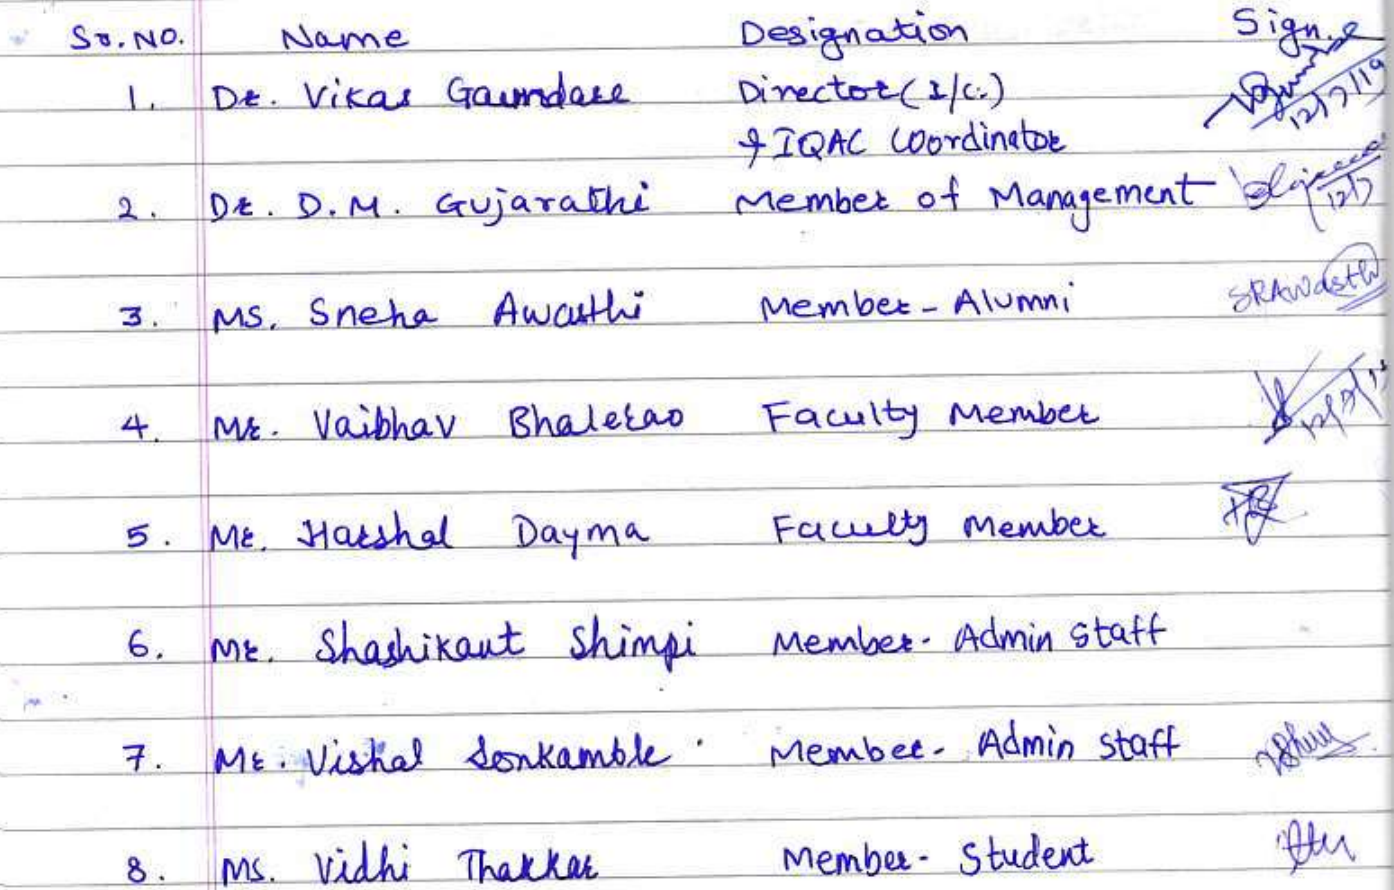 Sr. No. Name Designation Sign.
1. Dr. Vikas Gaundare Director (I/C.) 12/7/19
& IQAC Coordinator
2. Dr. D.M. Gujarathi Member of Management 12/7
3. Ms. Sneha Awasthi Member - Alumni SRAwasthi
4. Mr. Vaibhav Bhalerao Faculty Member 12/7/19
5. Mr. Harshal Dayma Faculty Member
6. Mr. Shashikant Shimpi Member - Admin Staff
7. Mr. Vishal Sonkamble Member - Admin Staff
8. Ms. Vidhi Thakkar Member - Student